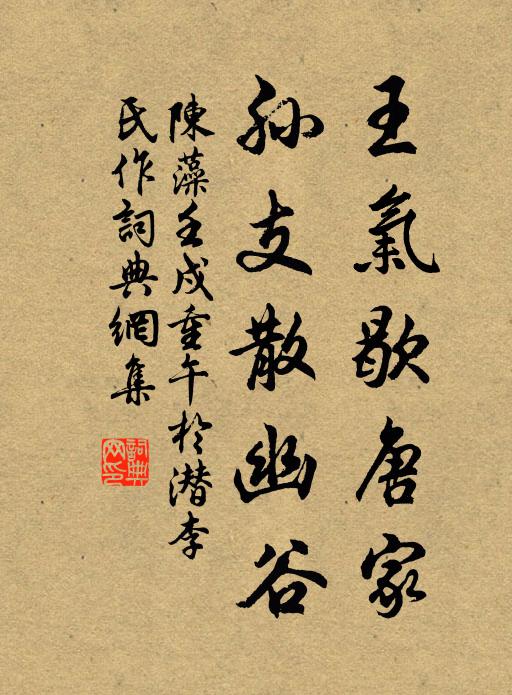 王氣歇唐家
孫支散幽谷
陳藻壬戌重午於潛李
氏作詞典網集
詞典
网印